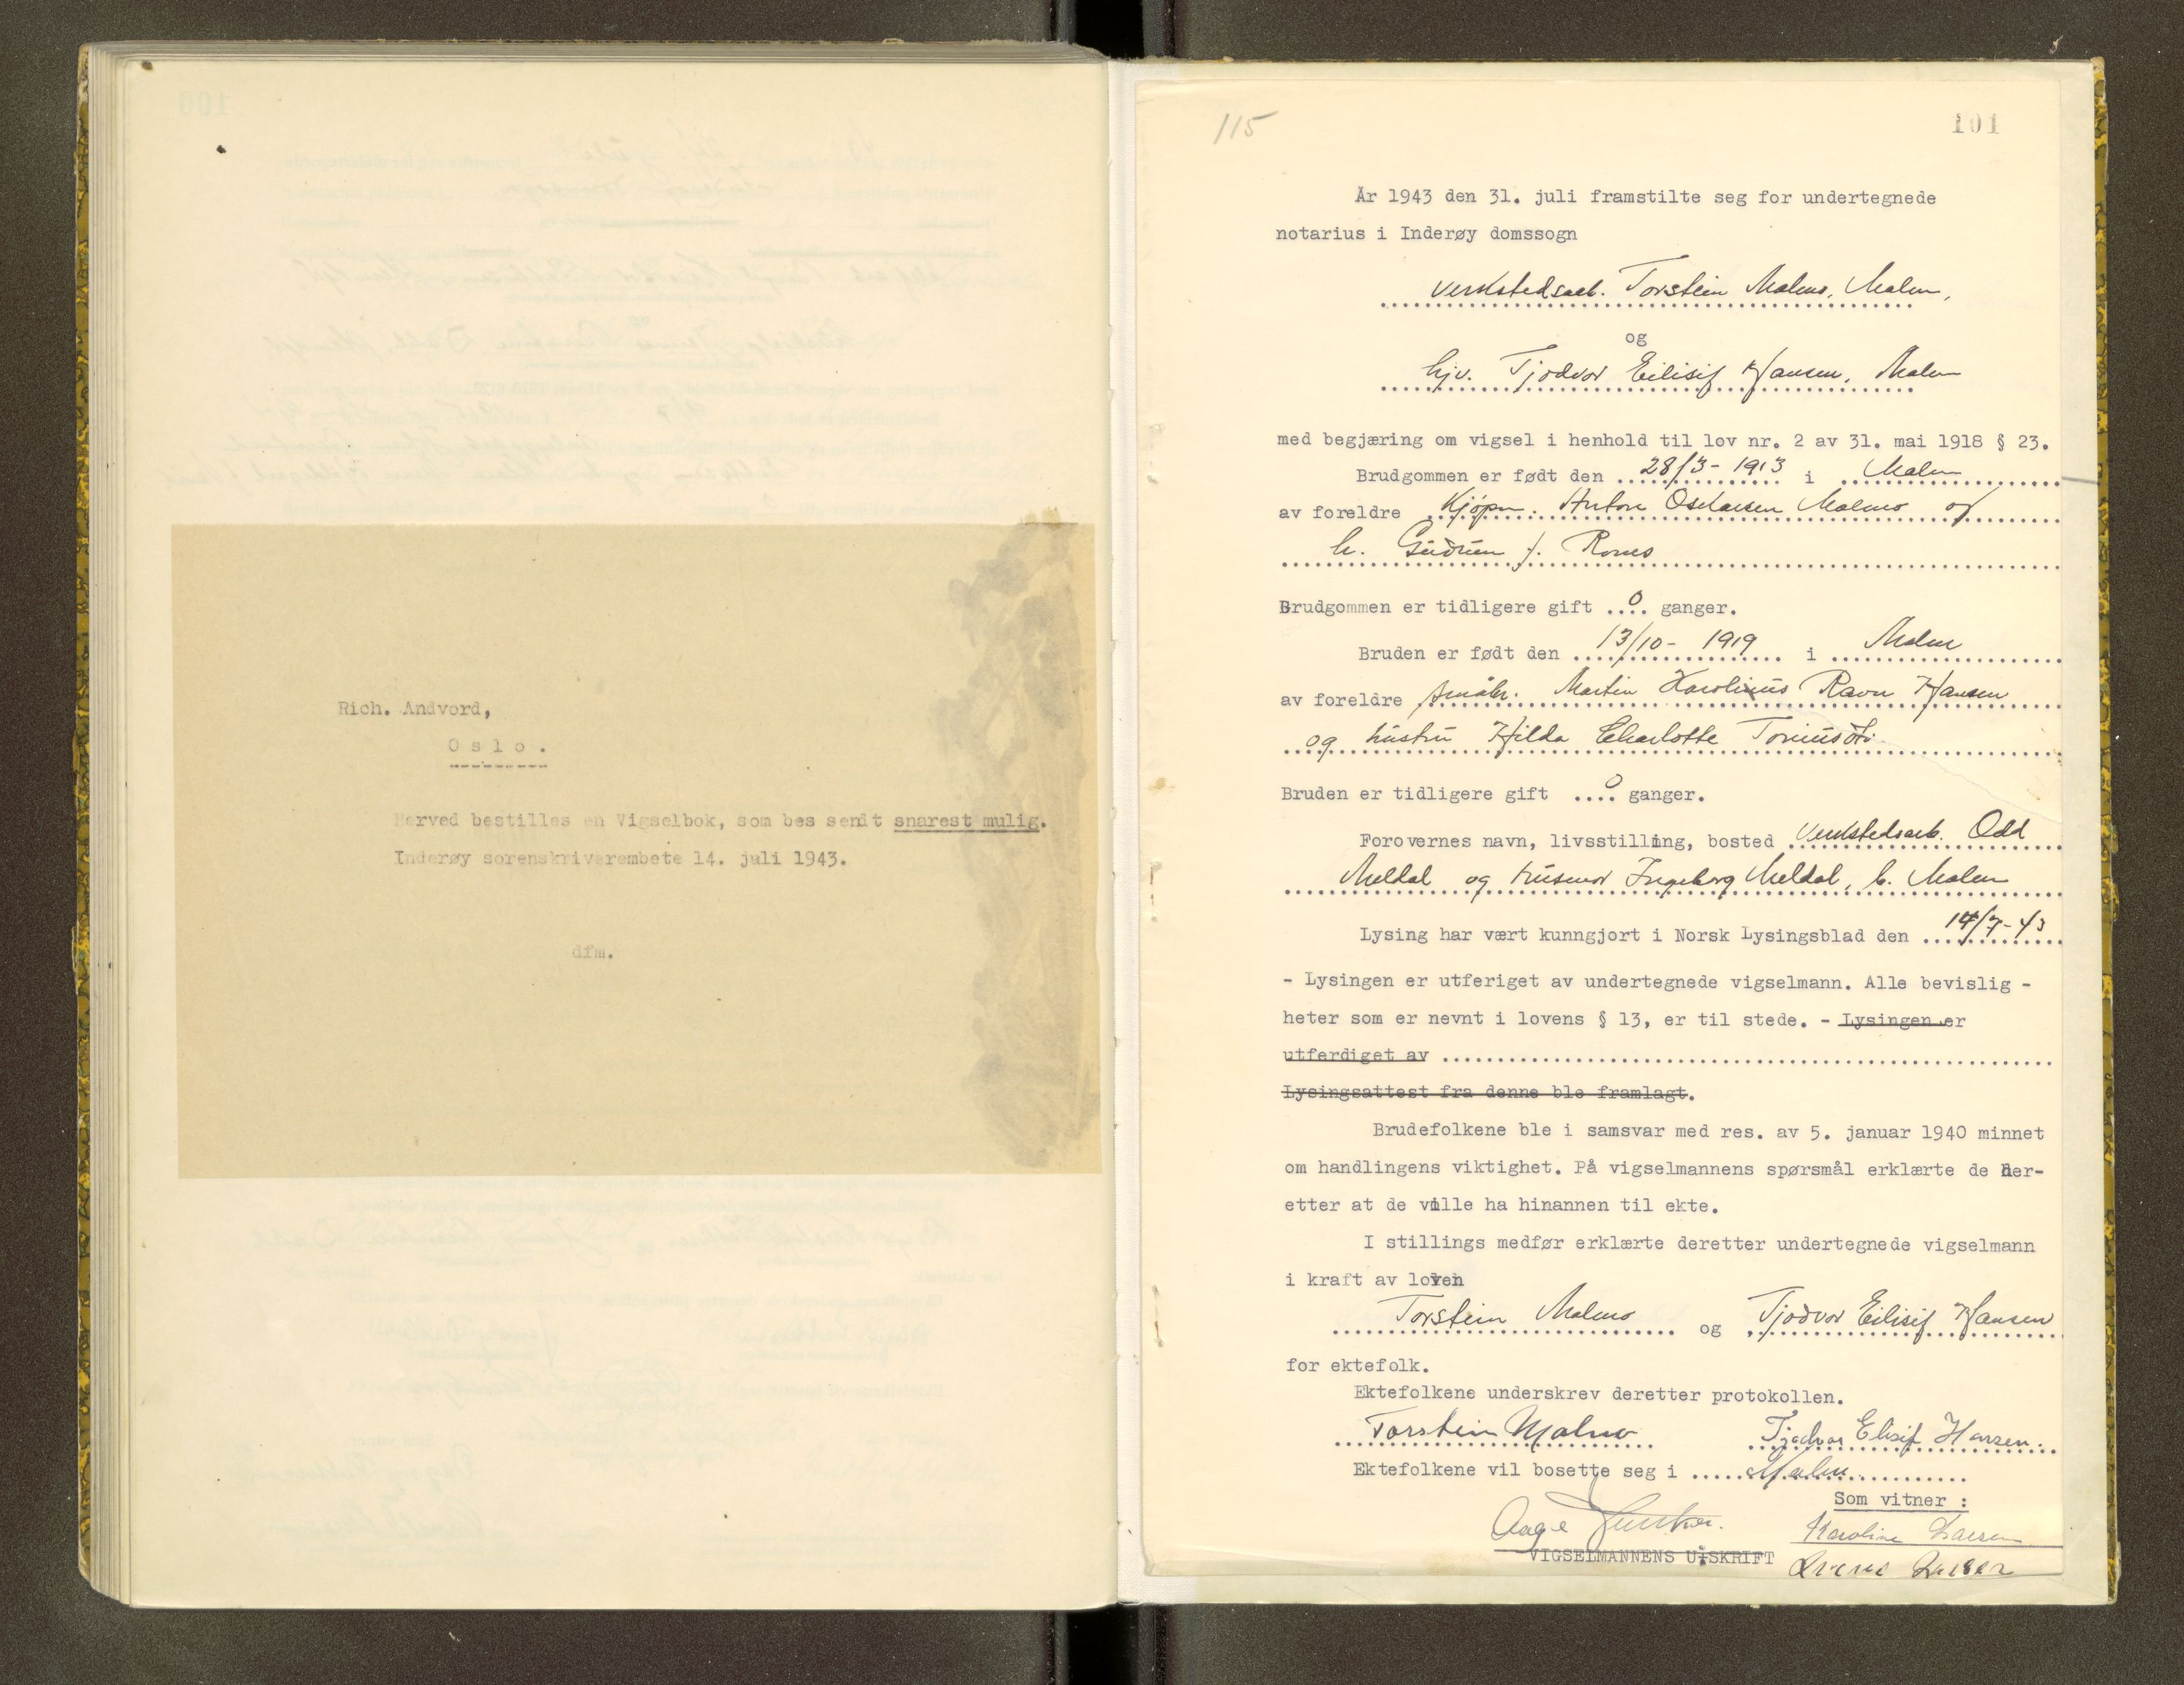 Rich. Andvord,
Oslo.
Herved bestilles en Vigselbok, som bes sendt snarest mulig.
Inderøy sorenskriverembete 14. juli 1943.
dfm.
115
101
År 1943 den 31. juli framstilte seg for undertegnede
notarius i Inderøy domssogn
verkstedsarb. Torstein Malmo, Malm,
og
hjv. Tjodvor Eilisif Hansen, Malm
med begjæring om vigsel i henhold til lov nr. 2 av 31. mai 1918 § 23.
Brudgommen er født den 28/3-1913 i Malm
av foreldre Kjøpm. Anton Oskarsen Malmo og
h. Gudrun f. Romes
Brudgommen er tidligere gift 0 ganger.
Bruden er født den 13/10-1919 i Malm
av foreldre småbr. Martin Karolinus Ravn Hansen
og hustru Hilda Charlotte
Bruden er tidligere gift 0 ganger.
Forovernes navn, livsstilling, bosted verkstedsarb. Odd
Meldal og husmor Ingeborg Meldal, b. Malm
Lysing har vært kunngjort i Norsk Lysingsblad den 14/7-43
- Lysingen er utferiget av undertegnede vigselmann. Alle bevislig -
heter som er nevnt i lovens § 13, er til stede. - Lysingen er
utferdiget av
Lysingsattest fra denne ble framlagt.
Brudefolkene ble i samsvar med res. av 5. januar 1940 minnet
om handlingens viktighet. På vigselmannens spørsmål erklærte de her-
etter at de ville ha hinannen til ekte.
I stillings medfør erklærte deretter undertegnede vigselmann
i kraft av loven
Torstein Malmo og Tjodvor Eilisif Hansen
for ektefolk.
Ektefolkene underskrev deretter protokollen.
Torstein Malmo Tjodvor Elisif Hansen
Ektefolkene vil bosette seg i Malm
Som vitner :
Aage
Karoline Larsen
VIGSELMANNENS UTSKRIFT